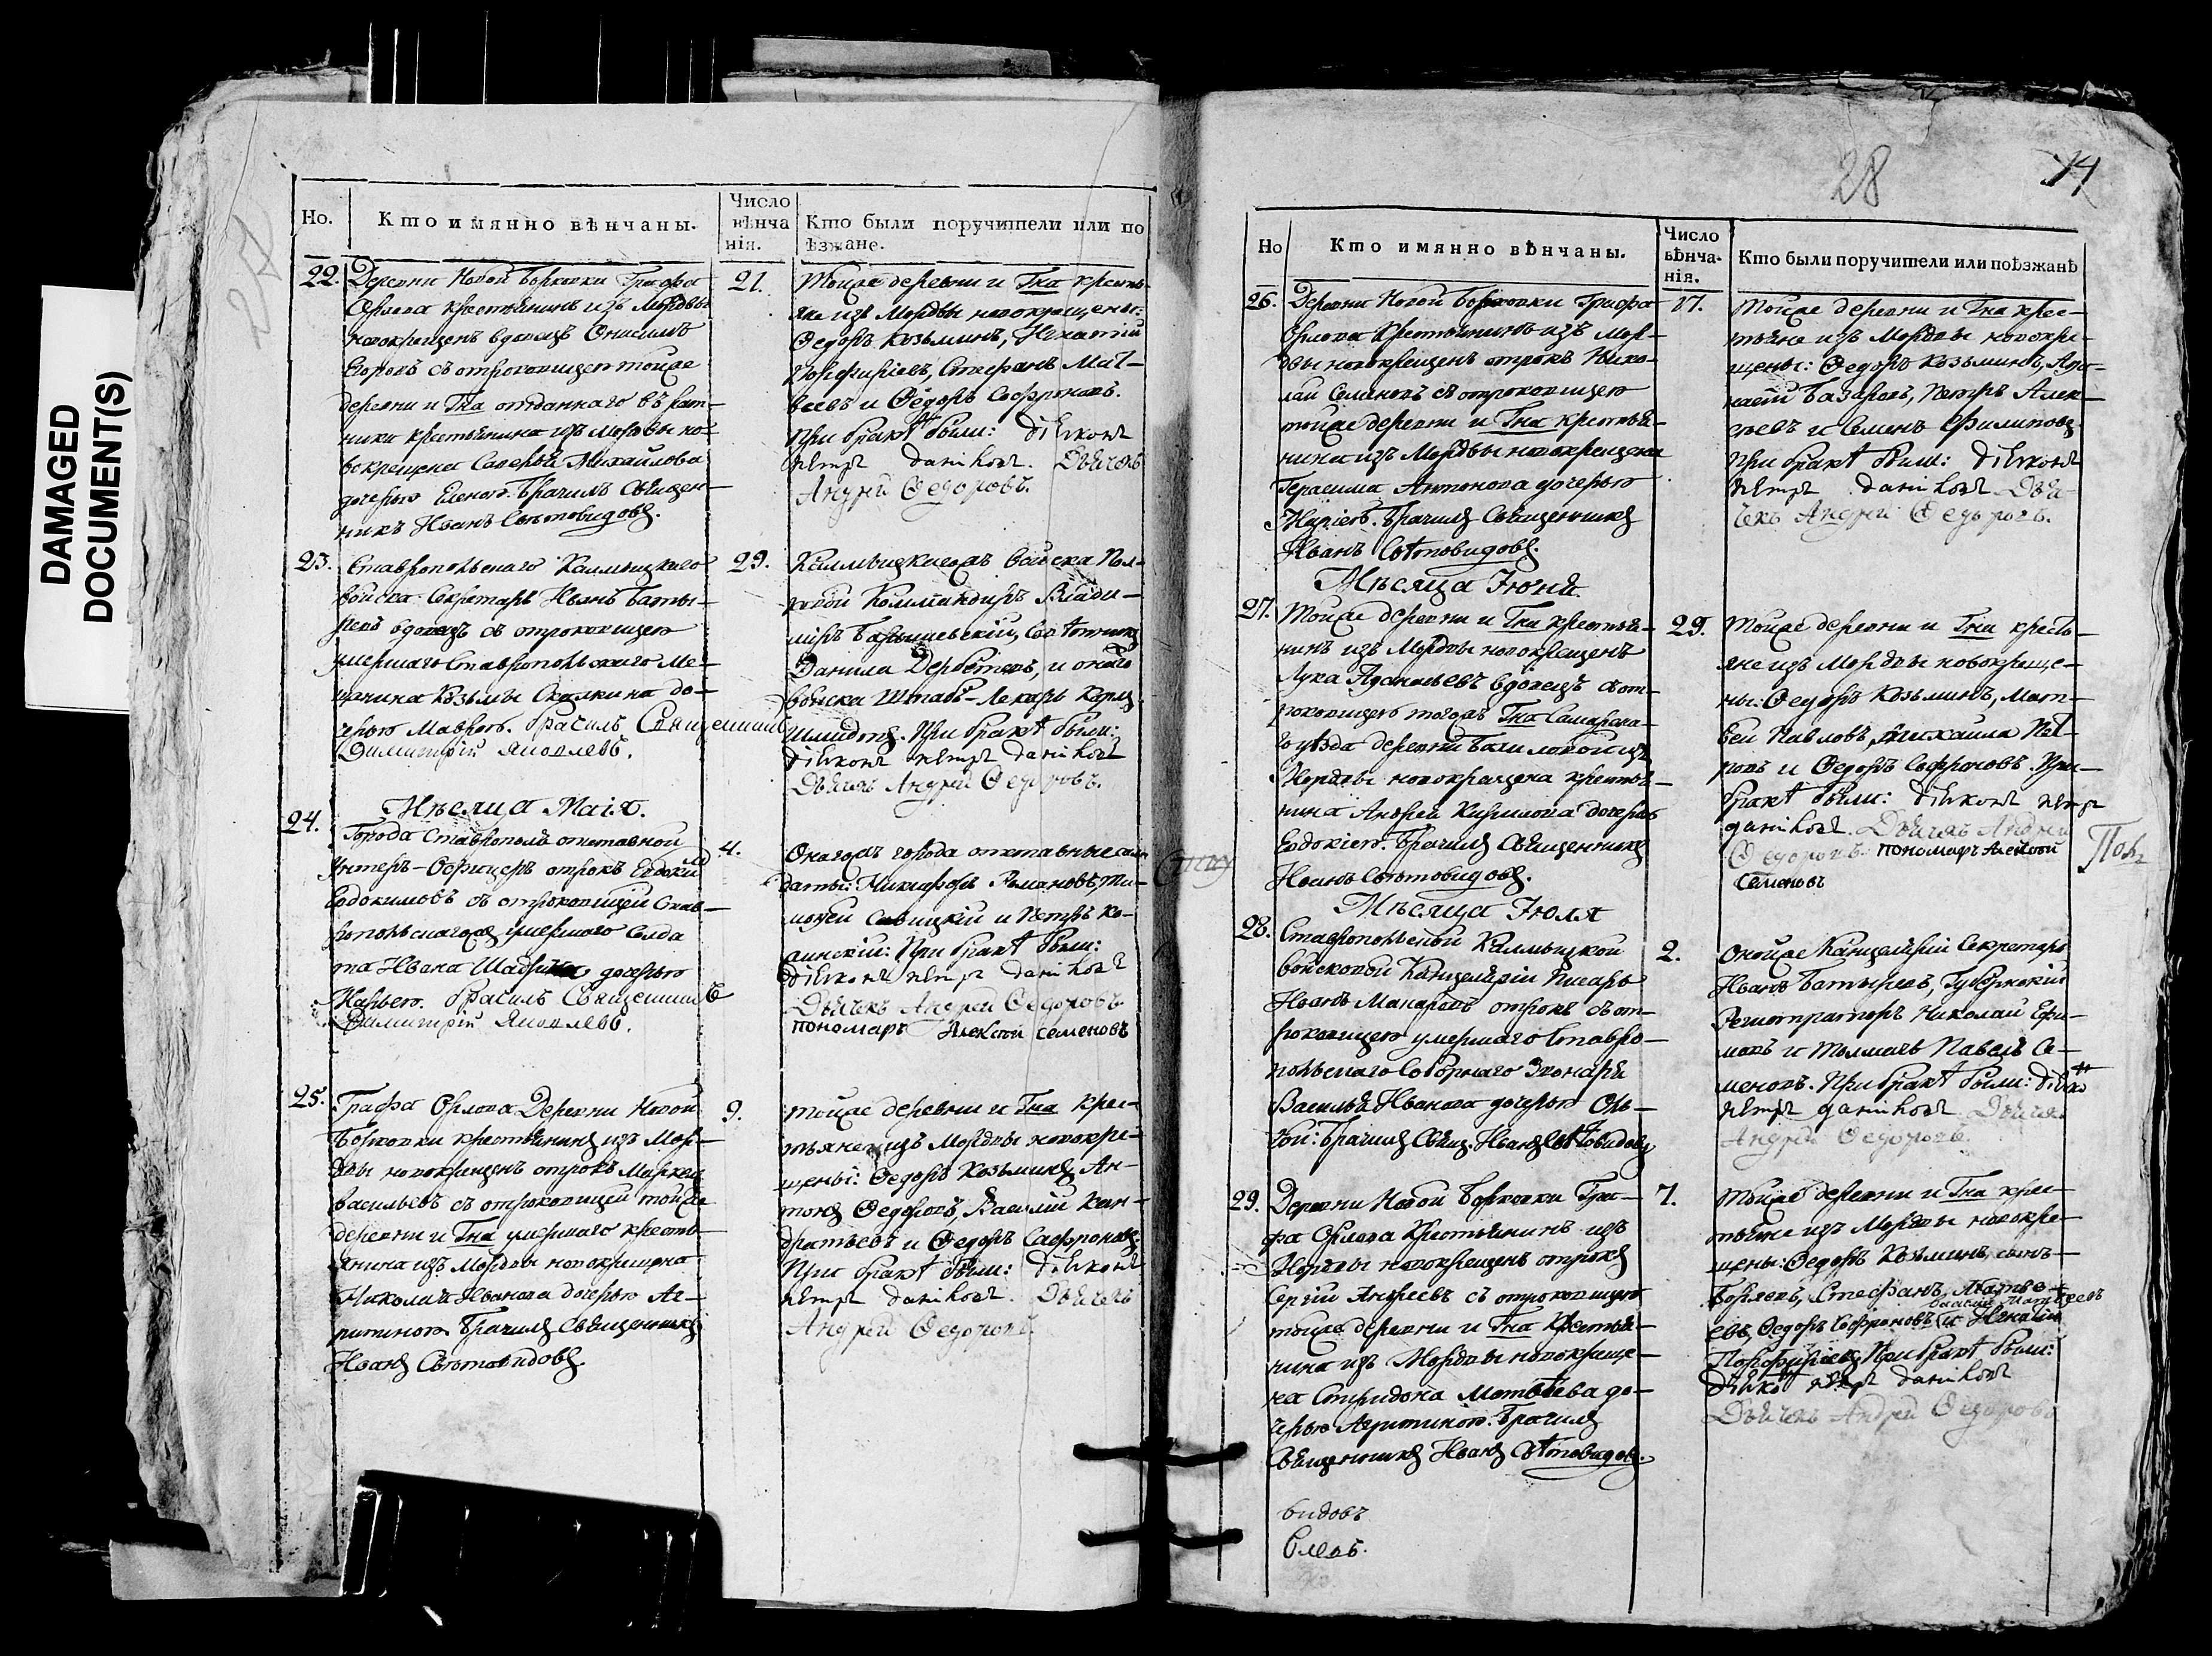 DAMAGED
DOCUMENT(S)
Но.
Кто имянно вѣнчаны.
Число
вѣнча
нія.
Кто были поручители или по
ѣзжане.
22.
Деревни Новой Борковки Графа
Орлова крестьянинъ изъ Мордвы
новокрещенъ вдовецъ Онисимъ
Егоровъ съ отроковицею тойже
деревни и Гна отданнаго въ рат-
ники крестьянина изъ Мордвы но-
вокрещена Савелья Михайлова
дочерью Еленою. Брачилъ Священ-
никъ Иванъ Свѣтовидовъ.
21.
Тойже деревни и Гна кресть-
яне изъ Мордвы новокрещены:
Ѳедоръ Козьминъ, Игнатій
Порфирьевъ, Стефанъ Мат-
веевъ и Ѳедоръ Софроновъ.
При бракѣ были: діяконъ
петръ даниловъ. Дьячекъ
Андрей Ѳедоровъ.
23.
Ставропольскаго Калмыцкаго
войска Секретарь Иванъ Баты-
ревъ вдовецъ съ отроковицею
умершаго Ставропольскаго Ме-
щанина Козьмы Скалкина до-
черью Маврою. Брачилъ Священникъ
Димитрій Яковлевъ.
29.
Калмыцкагожъ войска Пол-
ковой Командиръ Влади-
миръ Барышевскій, Сотникъ
Данила Дербетевъ, и онаго
войска Штабъ-Лекарь Карлъ
Шмидтъ. При бракѣ были:
діяконъ петръ даниловъ
Дьячекъ Андрей Ѳедоровъ.
Мѣсяца Маія.
24.
Города Ставрополя отставной
Унтеръ-Офицеръ отрокъ Евдоким
Евдокимовъ съ отроковицей Став-
ропольскагожъ умершаго Солда
та Ивана дочерью
Марьею. Брачилъ Священникъ
Димитрій Яковлевъ.
4.
Онагожъ города отставные сол
даты: Никифоръ Романовъ, Ти-
мофей Савицкій и Петръ
При бракѣ были:
діяконъ петръ даниловъ
Дьячекъ Андрей Ѳедоровъ
пономарь Алексѣй семеновъ
25.
Графа Орлова Деревни Новой
Борковки крестьянинъ изъ Мор-
двы новокрещенъ отрокъ Маркелъ
Васильевъ съ отроковицей тойже
деревни и Гна умершаго кресть-
янина изъ Мордвы новокрещена
Николая Иванова дочерью Аг-
рипиною. Брачилъ Священникъ
Иванъ Свѣтовидовъ.
9.
Тойже деревни и Гна крес-
тьяне изъ Мордвы новокре-
щены: Ѳедоръ Козьминъ, Ан-
тонъ Ѳедоровъ, Василій Кон-
дратьевъ и Ѳедоръ Софроновъ.
При бракѣ были: діяконъ
петръ даниловъ. Дьячекъ
Андрей Ѳедоровъ.
28
14
Но
Кто имянно вѣнчаны.
Число
вѣнча-
нія.
Кто были поручители или поѣзжанѣ
26.
Деревни Новой Борковки Графа
Орлова Крестьянинъ изъ Мор-
двы новокрещенъ отрокъ Нико-
лай Семеновъ съ отроковицею
тойже деревни и Гна крестья-
нина изъ Мордвы новокрещена
Герасима Антонова дочерью
Маріею. Брачилъ Священникъ
Иванъ Свѣтовидовъ.
17.
Тойже деревни и Гна крес-
тьяне изъ Мордвы новокре-
щены: Ѳедоръ Козьминъ,
Петръ Алек-
сѣевъ и Семенъ Филиповъ
При бракѣ были: діяконъ
петръ даниловъ Дья-
чекъ Андрей Ѳедоровъ.
Мѣсяца Іюня.
27.
Тойже деревни и Гна крестья-
нинъ изъ Мордвы новокрещенъ
Лука Афанасьевъ вдовецъ съ от-
роковицею тогожъ Гна Самарска-
го уѣзда деревни изъ
Мордвы новокрещена крестья-
нина Андрея Кирилова дочерью
Евдокіею. Брачилъ Священникъ
Иванъ Свѣтовидовъ.
29.
Тойже деревни и Гна кресть-
яне изъ Мордвы новокреще-
ны: Ѳедоръ Козьминъ, Мат-
вей Павловъ, Михайла Пет-
ровъ и Ѳедоръ Софроновъ. При
бракѣ были: діяконъ петръ
даниловъ. Дьячекъ Андрей
Ѳедоровъ. пономарь Алексѣй
семеновъ
Мѣсяца Іюля
28.
Ставропольской Калмыцкой
войсковой Канцеляріи Писарь
Иванъ Макаровъ отрокъ съ от-
роковицею умершаго Ставро-
польскаго Соборнаго Пономаря
Василья Иванова дочерью Оль-
гой. Брачилъ Свящ. Иванъ Свѣтовидовъ
2.
Онойже Канцеляріи Секретарь
Иванъ Батыревъ, Губернскій
Регистраторъ Николай Ефи-
мовъ и Толмачъ Павелъ Се-
меновъ. При бракѣ были: діяко
петръ даниловъ. Дьячекъ
Андрей Ѳедоровъ.
29.
Деревни Новой Борковки Гра-
фа Орлова Крестьянинъ изъ
Мордвы новокрещенъ отрокъ
Сергій Андреевъ съ отроковицею
тойже деревни и Гна Крестья-
нина изъ Мордвы новокреще-
на Спиридона Матвѣева до-
черью Агрипиною. Брачилъ
Священникъ Иванъ Свѣтовидовъ.
7.
Тойже деревни и Гна крес-
тьяне изъ Мордвы новокре-
щены: Ѳедоръ Козьминъ,
Стефанъ Матве-
евъ, Ѳедоръ Софроновъ и Игнатій
Порфирьевъ. При бракѣ были:
діяко петръ даниловъ
Дьячекъ Андрей Ѳедоровъ
видовъ